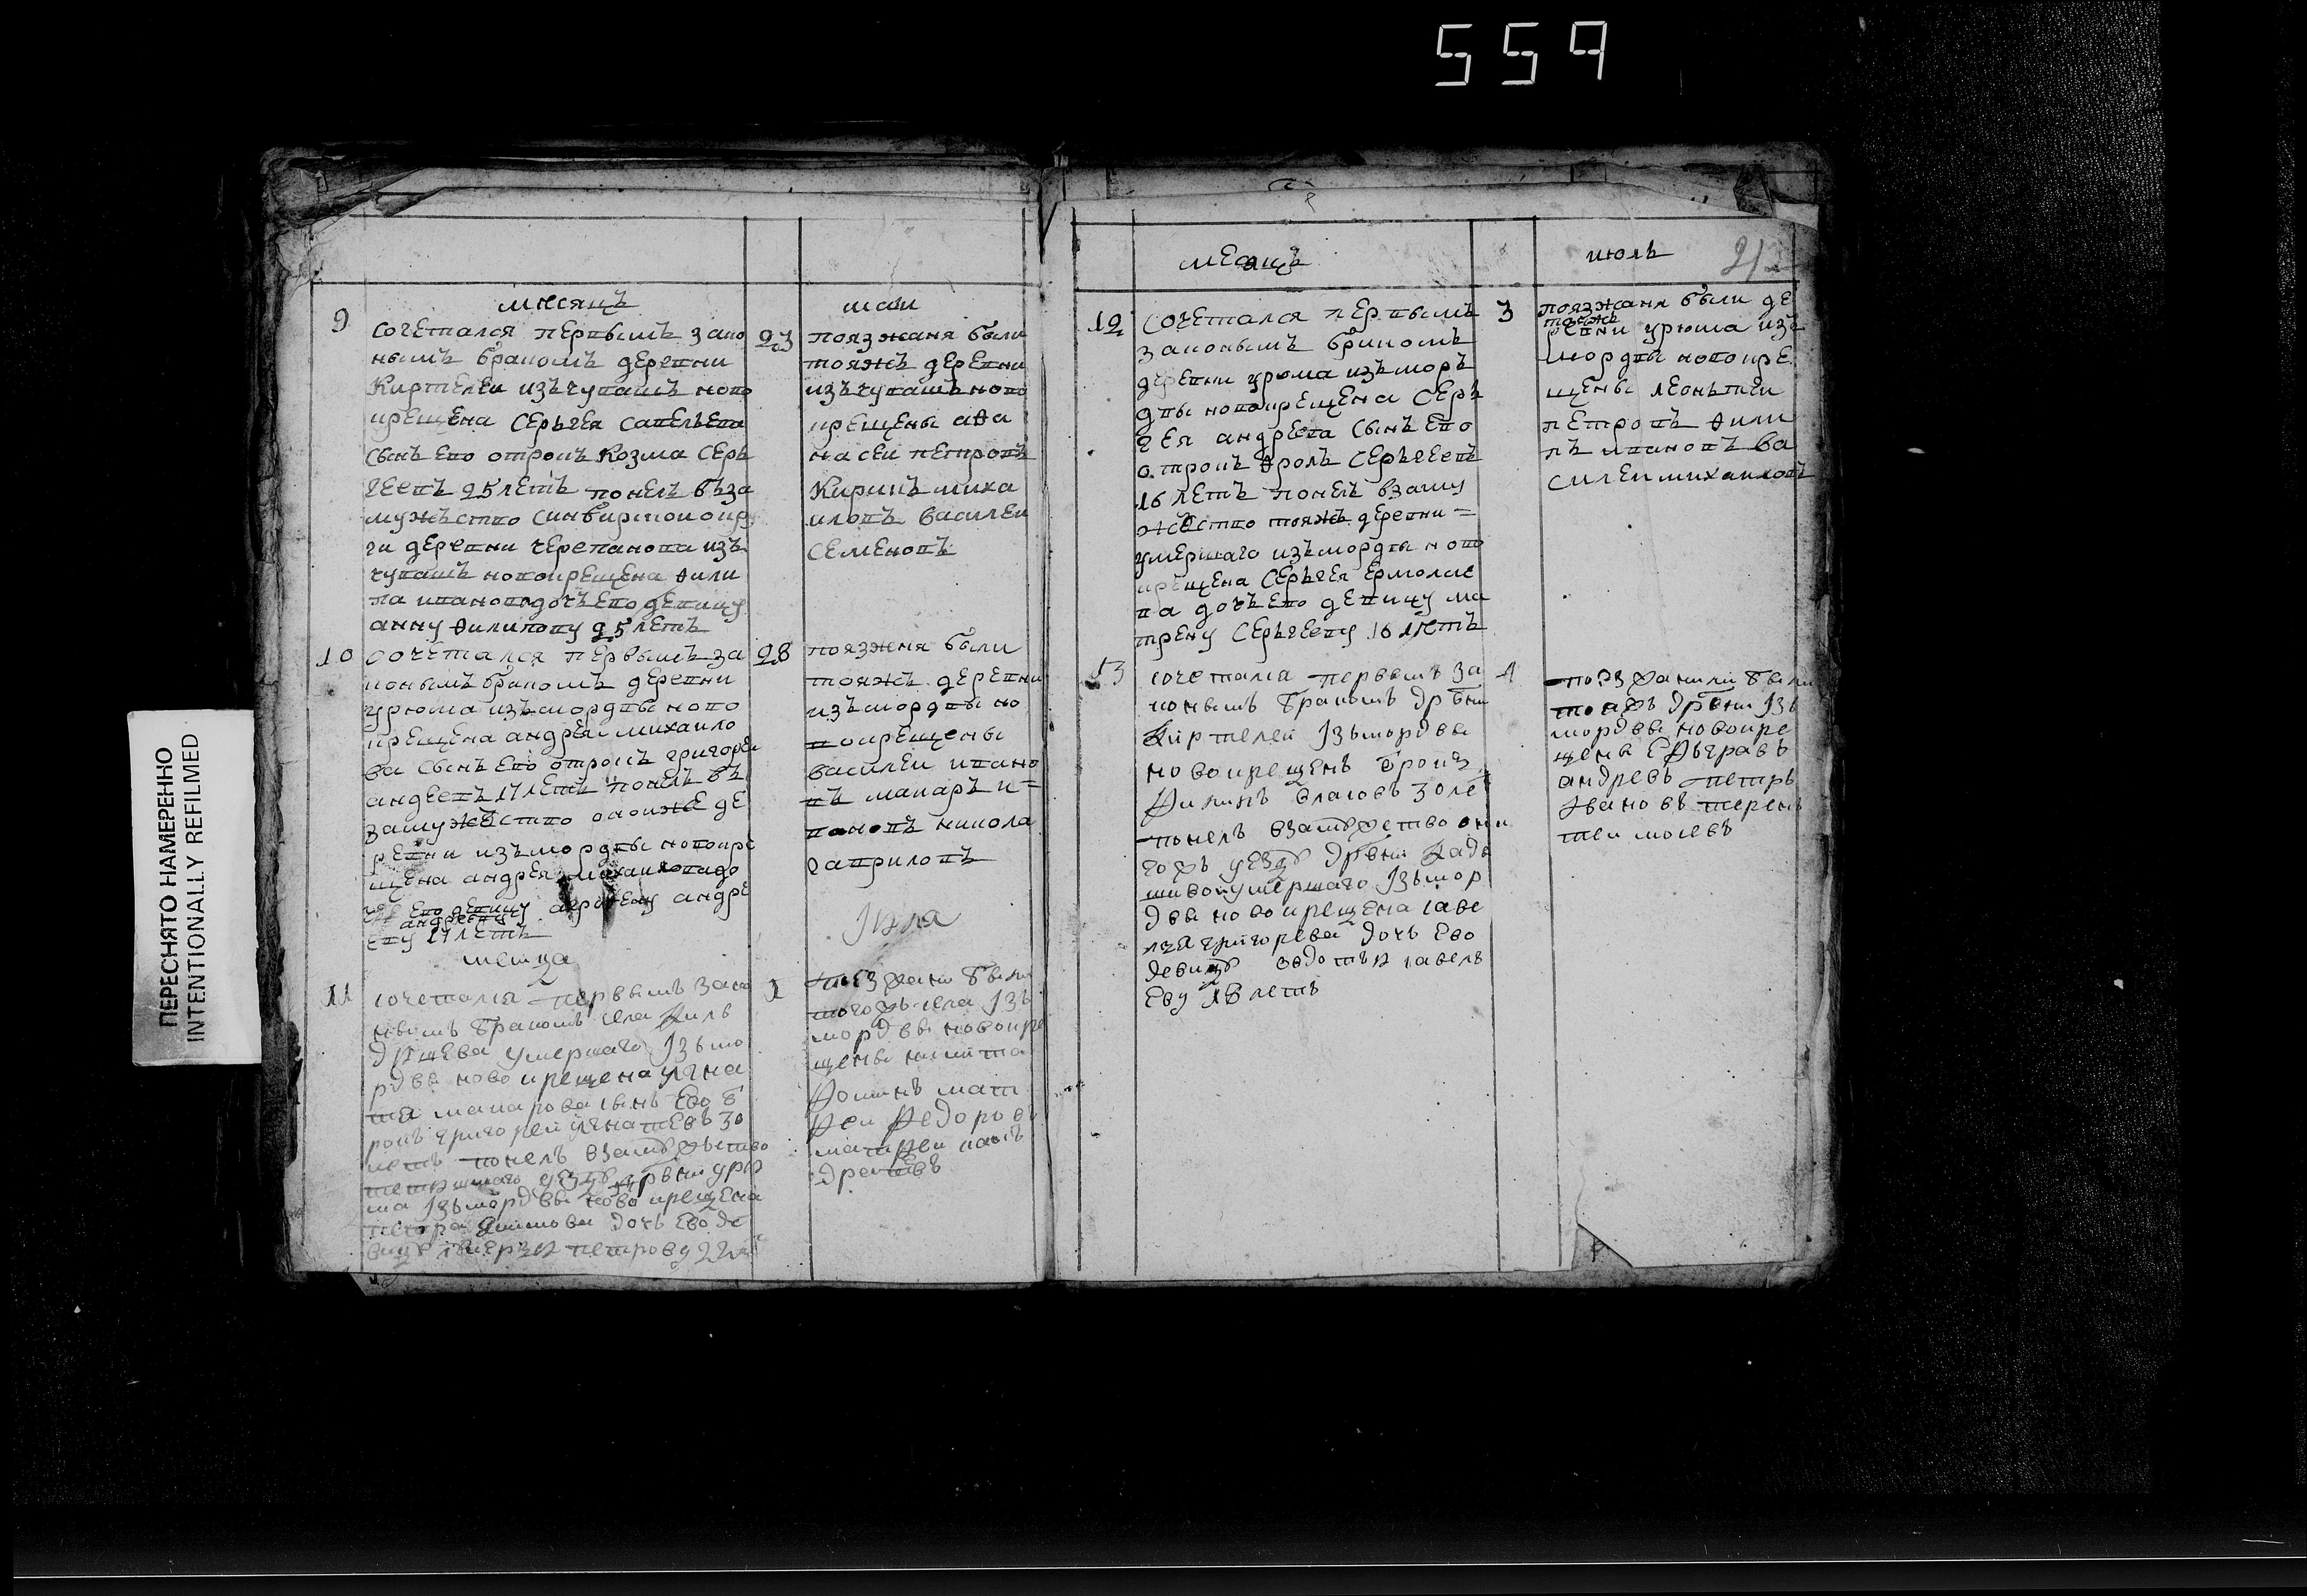 559
ПЕРЕСНЯТО НАМЕРЕННО
INTENTIONALLY REFILMED
месяцъ
маи
9
сочетался первымъ зако
ннымъ бракомъ деревни
Киртелеи изъ чувашъ ново
крещена Серьгея Савельева
сынъ ево отрокъ Козма Серь
геевъ 25 летъ понелъ въ за
мужъство Синбирскои окру
ги деревни Черепанова изъ
чувашъ новокрещена Фили
па Иванова дочъ ево девицу
анну Филипову 25 летъ
23
поязжаня были
тояжъ деревни
изъ чувашъ ново
крещены аѳа
насеи петровъ
Кирикъ миха
иловъ василеи
Семеновъ
10
сочетался первымъ за
конымъ бракомъ деревни
урюма изъ мордвы ново
крещена андрея михаило
ва сынъ ево отрокъ григореи
андеевъ 17 летъ понелъ въ
замужество оноижЕ де
ревни изъ мордвы новокре
щена андрея михаилова до
ево девицу андре
андреену
еву 17 летъ
28
поязженя были
тояжъ деревни
изъ мордвы но
вокрещены
василеи ивано
въ макаръ и=
вановъ никола
гавриловъ
месяца
Июля
11
сочетался первымъ зако
нымъ бракомъ села Киль
дюшева умершаго Iзъ мо
рдвы новокрещена Игна
тя макарова сынъ Ево б
рокъ григореи Игнатевъ 30
летъ понелъ взамужъство
уезду дрвни Урю
ма Iзъ мордвы новокрещена
петра Якимова дочь Ево де
вицу петрову 22 ле
1
поезжани были
тогожъ села Iзъ
мордвы новокре
щены никита
Фоминъ мат
феи Федоровъ
матфеи
месяцъ
июль
21
12
сочетался первымъ
законымъ бракомъ
деревни урюма изъ моръ
двы новокрещена Серъ
гея андреева сынъ ево
отрокъ Фролъ Серьгеевъ
16 летъ понелъ взаму
жество тояжъ деревни =
умершаго изъ мордвы ново
крещена Серьгея Ермолае
ва дочъ ево девицу ма
трену Серьгееву 16 летъ
3
поязжаня были де
тояжъ
ревни урюма изъ
мордвы новокре
щены леонътеи
петровъ Фили
пъ ивановъ ва
силеи михаиловъ
13
сочетался первымъ за
конымъ бракомъ дрвни
Киртелеи Iзъ мордвы
новокрещенъ брокъ
Филипъ Власовъ 30 ле
понелъ взамужство
гожъ уезду дрвни Кады
шево умершаго Iзъ мор
двы новокрещена саве
лья григорева дочь Ево
девицу Овдотью савель
Еву 18 летъ
4
поезжанили были
тояжъ дрвни Iзъ
мордвы новокре
щены Евъграфъ
андревъ петръ
Ивановъ терень
теи моsевъ